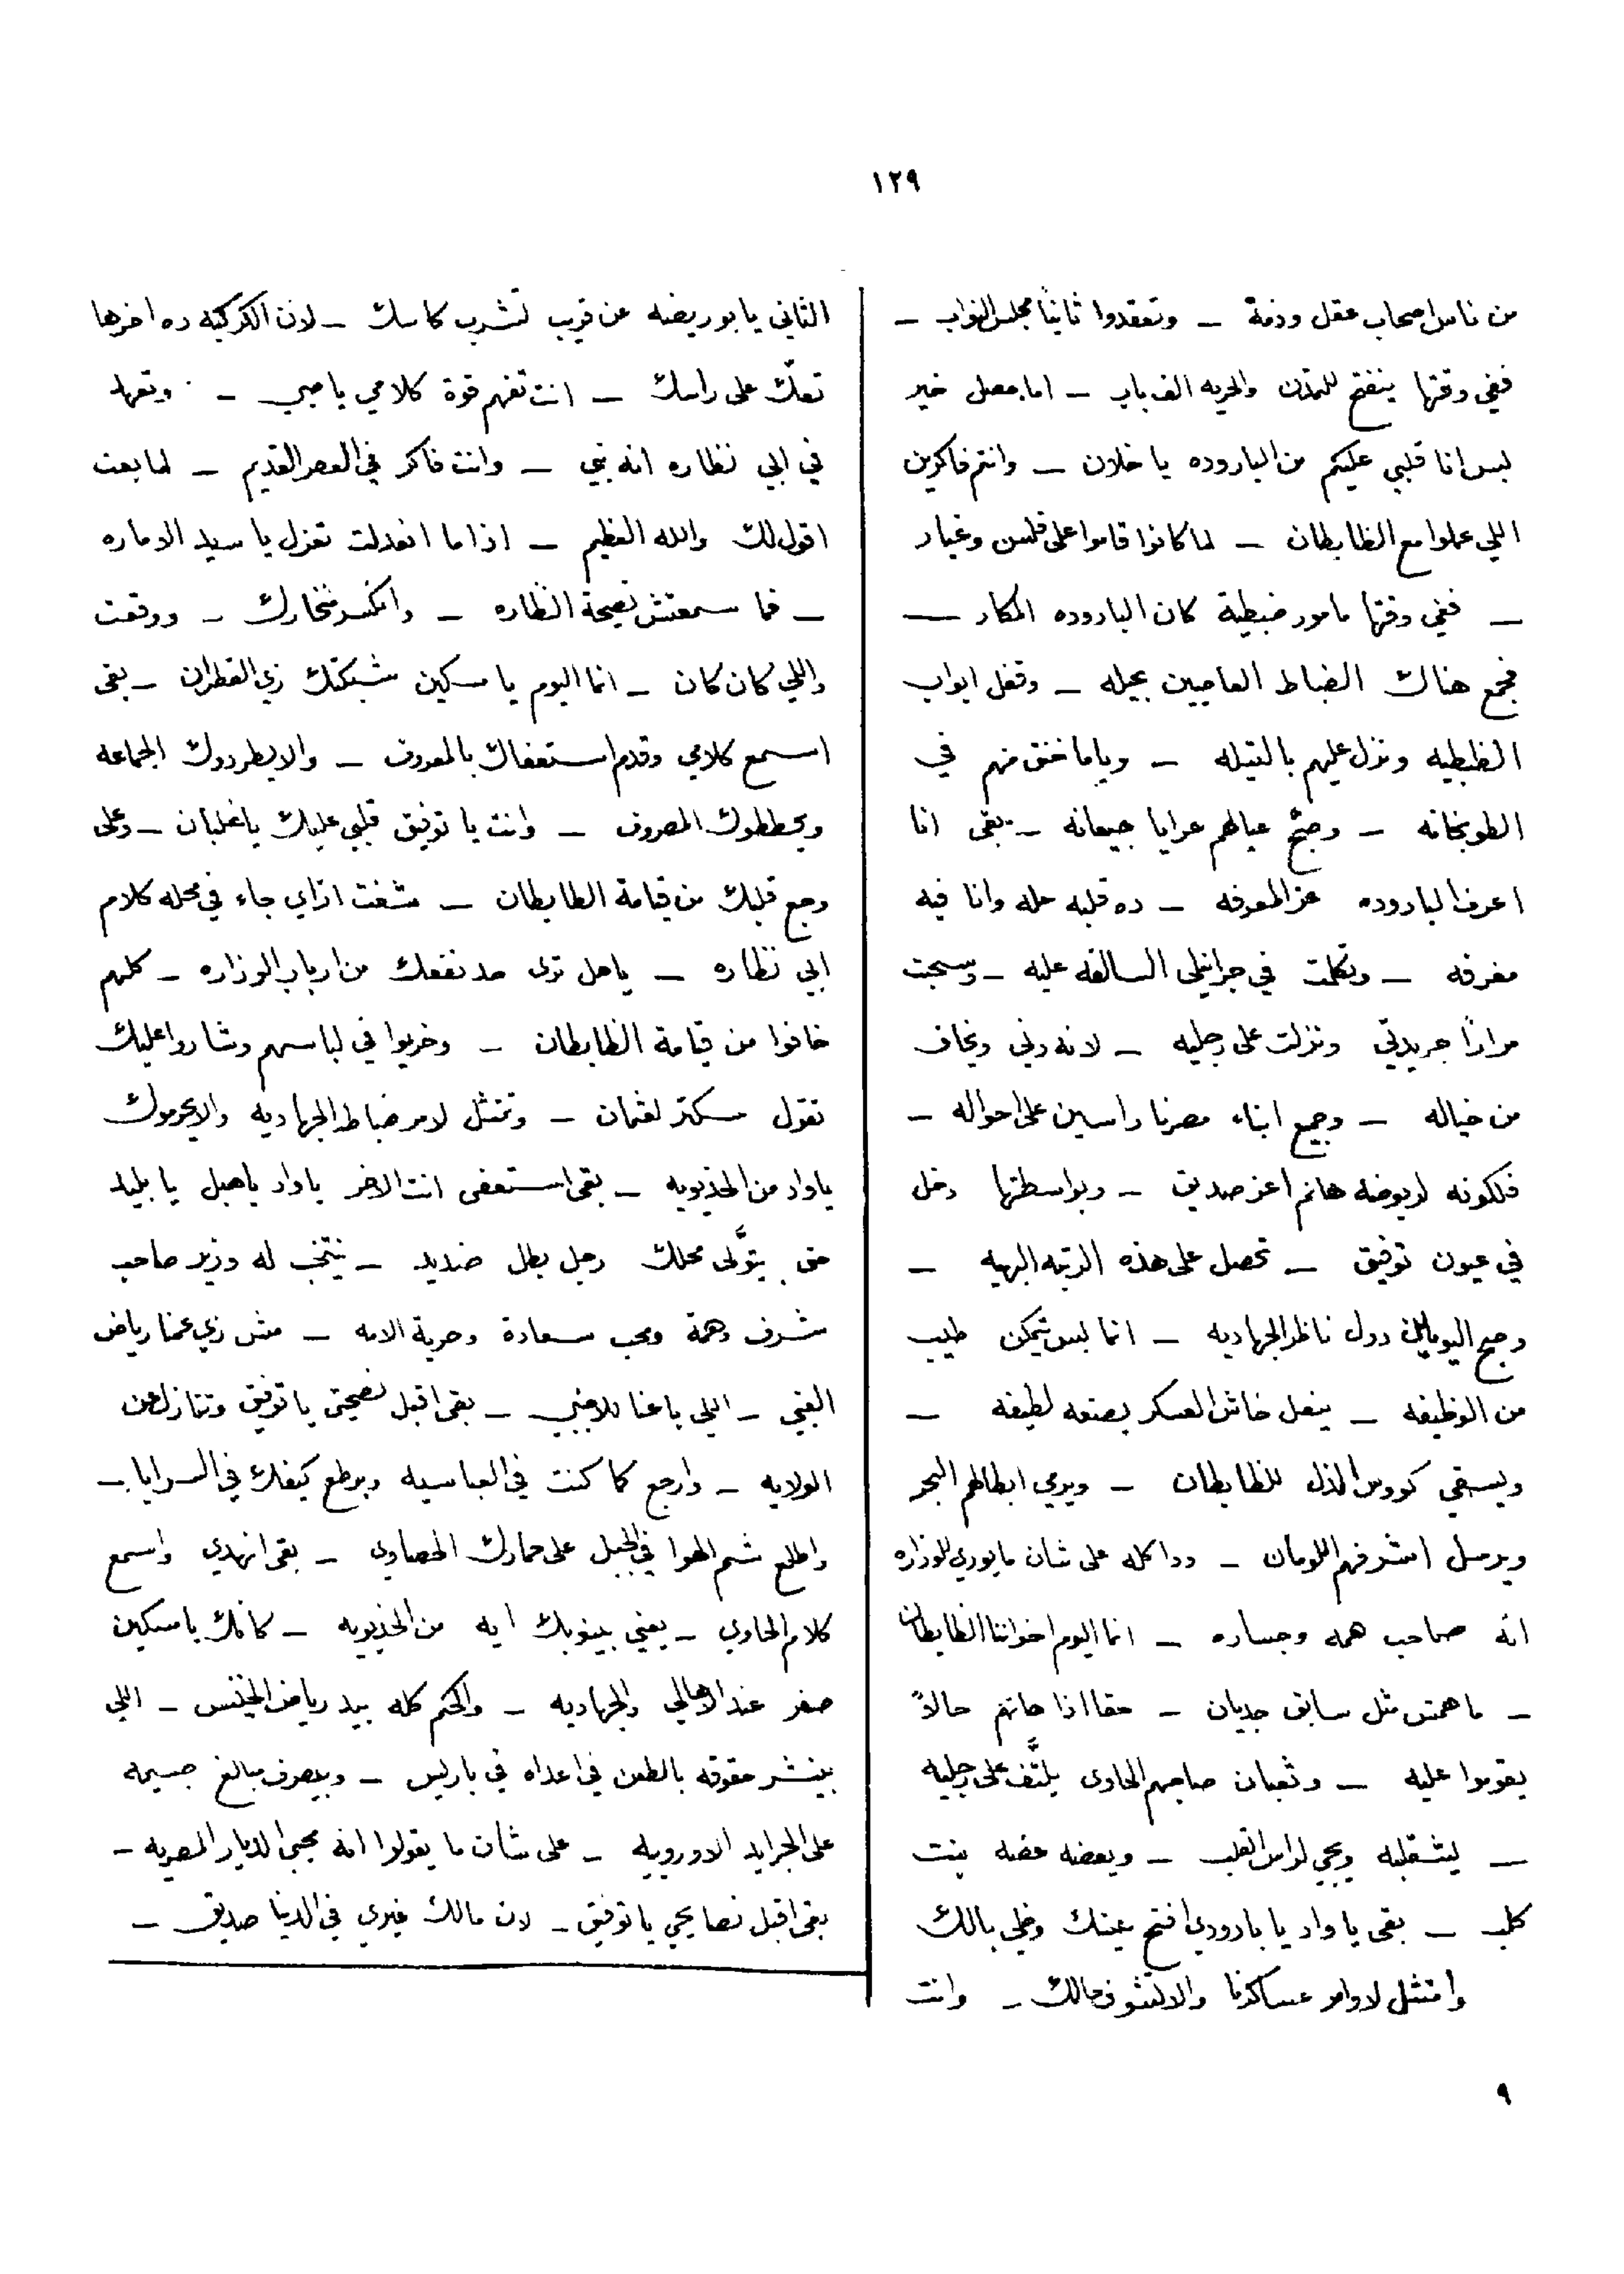 ١٢٩
من ناس اصحاب عقل وذمة – وتعقدوا ثانياً مجلس النواب –
ففي وقتها ينفتح للتمدن والحريه الف باب – اما يحصل خير
بس انا قلبي عليكم من الباروده يا خلان – وانتم فاكرين
اللي عملوا مع الظابطان – لما كانوا قاموا على ولسن وغيار
– ففي وقتها مامور ضبطية كان الباروده المكار –
فجمع هناك الضباط العاصيين بحيله – وقفل ابواب
الظبطيه ونزل عليهم بالتيله – وياما خنق منهم في
الطوبخانه – وصبّح عيالهم عرايا جيعانه – يبقى انا
اعرف الباروده عز المعرفه – ده قلبه حله وانا فيه
مغرفه – وتكلمت في جرانيلى السالفه عليه – وسحبت
مراراً جريدتي ونزلت على رجليه – لانه دني ويخاف
من خياله – وجميع ابناء مصرنا راسيين على احواله –
فلكونه لربوضه هانم اعز صديق – وبواسطتها دخل
في عيون توفيق – تحصل على هذه الرتبه البهيه –
وصبح اليومين دول ناظر الجهاديه – انما بس يتمكن طيب
من الوظيفه – ينعل خاش العسكر بصنعه لطيفه –
ويسقي كووس الذل للظابطان – ويرمي ابطالهم البحر
ويرسل اشرفهم اللومان – ودا كله على شان ما يوري للوزاره
انه صاحب همه وجساره – انما اليوم اخواننا الظابطان
– ما همش مثل سابق جديان – حقا اذا خانهم حالاً
يقوموا عليه – وثعبان صاحبهم الحاوى يلتّف على رجليه
– يشقلبه ويجي لراس القلب – ويعضه عضه بنت
كلب – بقى يا واد يا بارودي افتح عينك وخلي بالك
وامتثل لاوامر عساكرنا والا تشوف حالك – وانت
الثاني يا بو ريضه عن قريب تشرب كاسك – لان الكركبه ده اخرها
تعكّ على راسك – انت تفهم قوة كلامي يا صبي – وتعهد
في ابي نظاره انه نبي – وانت فاكر في العصر القديم – لما بعت
اقول لك والله العظيم – اذا ما انعدلت تعزل يا سيد الاماره
– فما سمعتش نصيحة النظاره – وانكسر فخارك – ووقعت
واللي كان كان – انما اليوم يا مسكين شبكتك زي القطران – بقى
اسمع كلامي وقدم استعفاك بالمعروف – والا يطردوك الجماعه
ويحططوك المصروف – وانت يا توفيق قلبي عليك يا غلبان – وعلى
وجع قلبك من قيامة الظابطان – شفت ازاي جاء في محله كلام
ابي نظاره – يا هل ترى حد نفعك من ارباب الوزاره – كلهم
خافوا من قيامة الظابطان – وخريوا في لباسهم وشاروا عليك
تقول سكتر لعثمان – وتمتثل لامر ضباط الجهاديه والا يحرموك
يا واد من الخديويه – بقى استعفى انت الاخر يا واد يا هبل يا بليد
حتى يتوّلى محلك رجل بطل صنديد – ينتخب له وزير صاحب
شرف وهمة ومحب سعادة وحرية الامه – مش زي عمنا رياض
الغبي – اللى باعنا للاجنبي – بقى اقبل نصيحتى يا توفيق وتنازل عن
الولايه – وارجع كما كنت في العباسيه وبرطع كيفك في السرايا –
واطلع شم الهوا في الجبل على حمارك الحصاوي – بقى انهدي واسمع
كلام الحاوي – يعني بينوبك ايه من الخديويه – كانك يا مسكين
صفر عند الاهالي والجهاديه – والحكم كله بيد رياض الخنفس – اللي
بينشر حقوقه بالطعن في اعداه في باريس – وبيصرف مبالغ جسيمه
على الجرايد الاوروبيه – على شان ما يقولوا انه محيي الديار المصريه –
بقى اقبل نصايحي يا توفيق – لان مالك غيري في الدنيا صديق –
٩